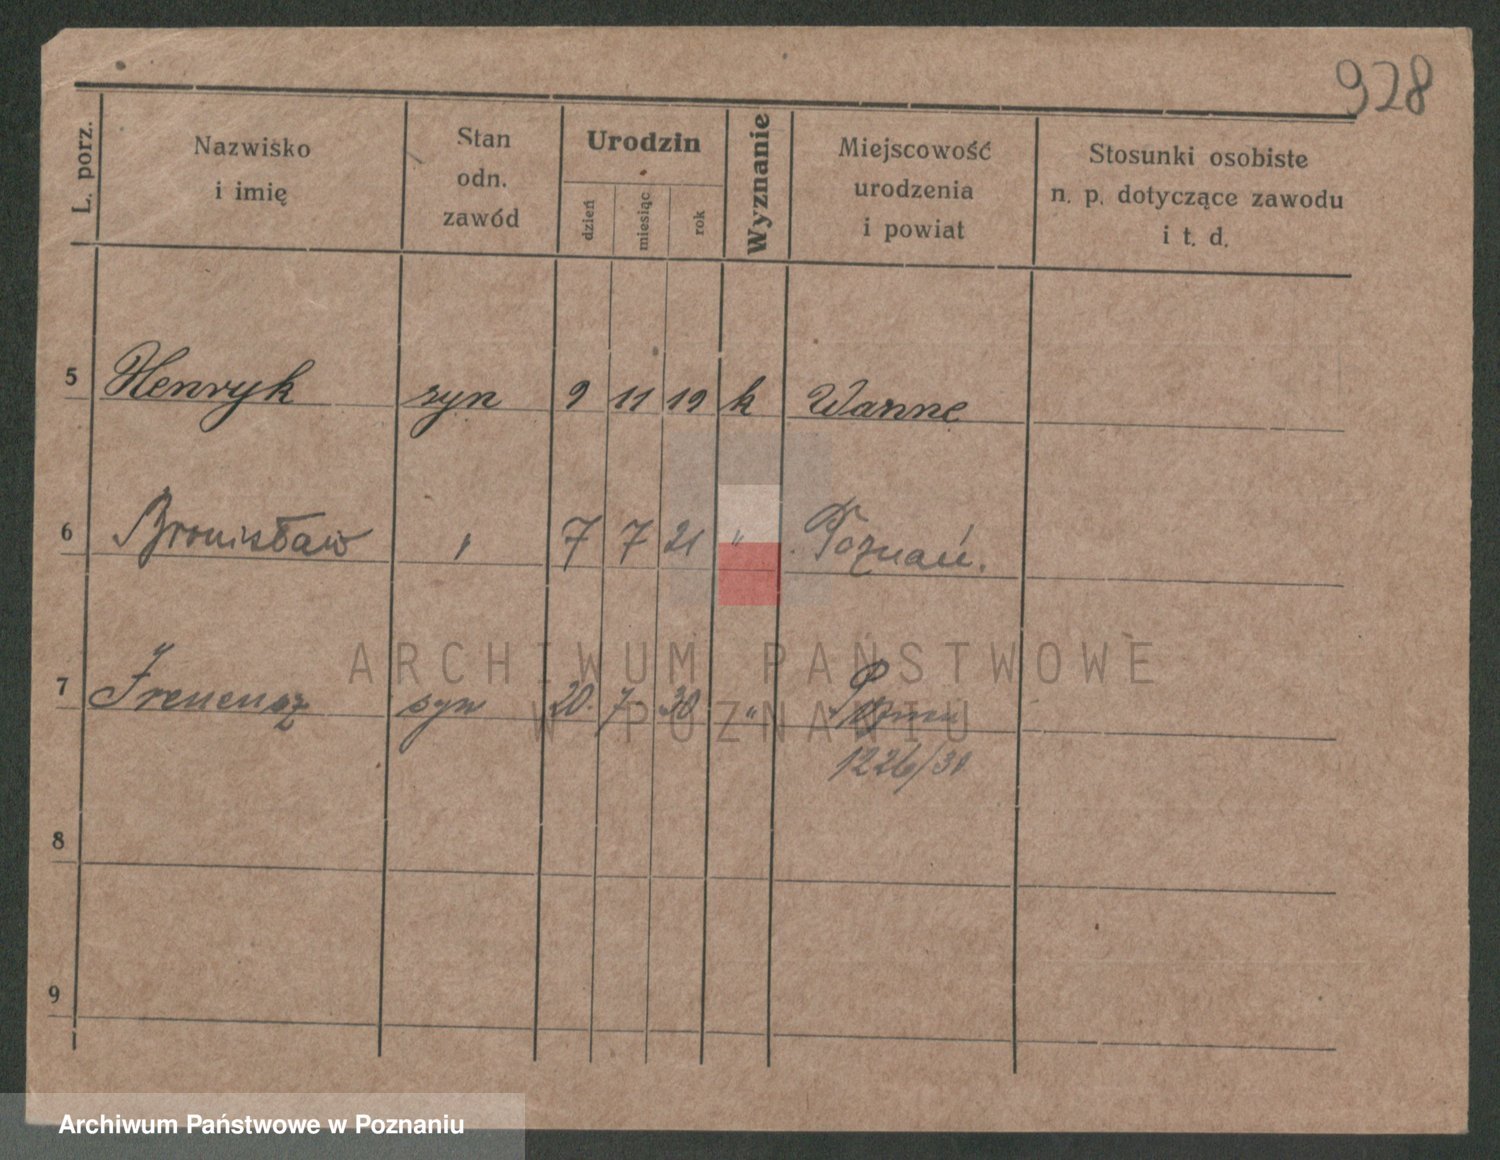 928
L. porz. Nazwisko i imię Stan odn. zawód Urodzin dzień miesiąc rok Wyznanie Miejscowość urodzenia i powiat Stosunki osobiste n. p. dotyczące zawodu i t. d.
5 Henryk syn 9 11 19 k Wanne
6 Bronisław " 7 7 21 " Poznań.
7 Ireneusz syn 20. 7. 30 "
1226/31
8
9
ARCHIWUM PAŃSTWOWE
W POZNANIU
Archiwum Państwowe w Poznaniu